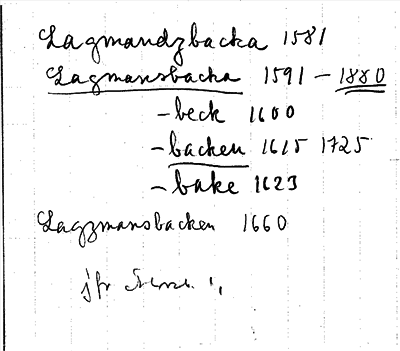 Lagmandzbacka 1581
Lagmansbacka 1591 - 1880
- beck 1600
- backen 1615 1725
- bake 1623
Lagzmansbacken 1660
jfr